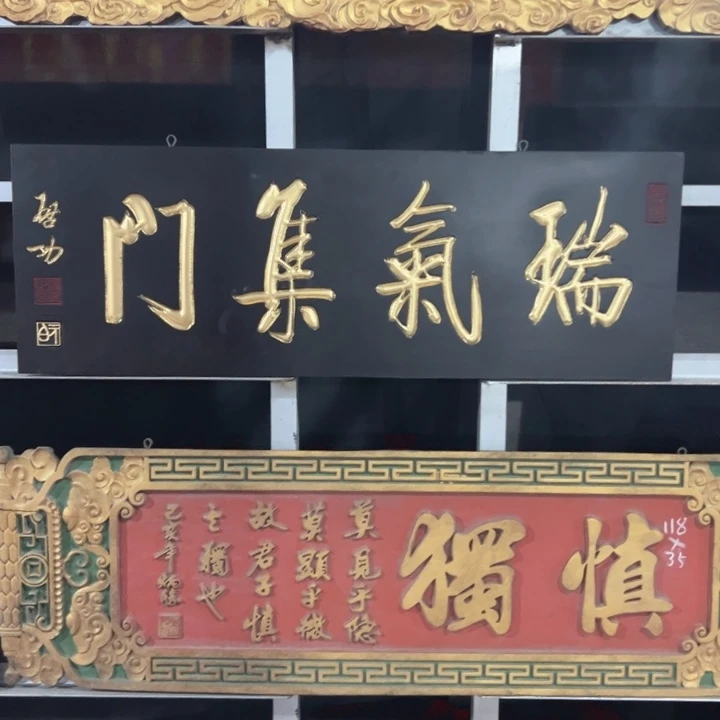 瑞氣集門
啓功
慎獨
莫見乎隱
莫顯乎微
故君子慎
其獨也
乙亥年
118
×
35